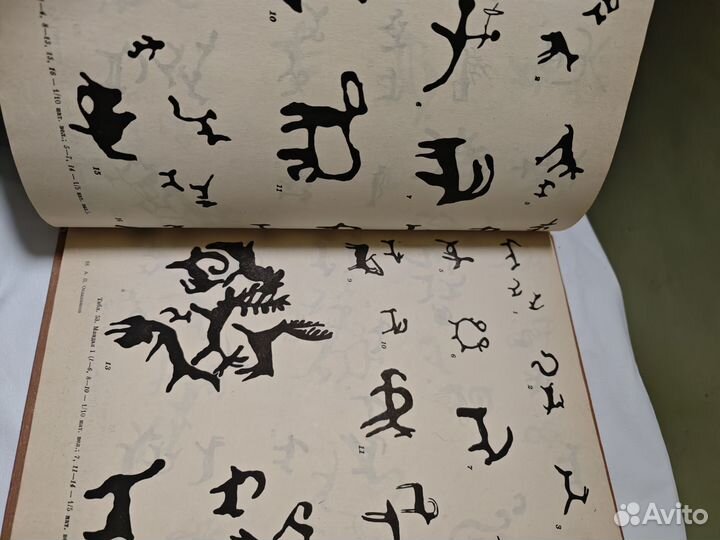 10
6
2
15
11
7
8—13, 15, 16 — 1/10 нат. вел.; 5—7, 14 — 1/5 нат. вел.
9
5
1
10
6
2
13
11
7
3
Табл. 53. Мандал 1 (1—6, 8—10 — 1/10 нат. вел.; 7, 11—14 — 1/5 нат.
А. П. Окладников
Avito